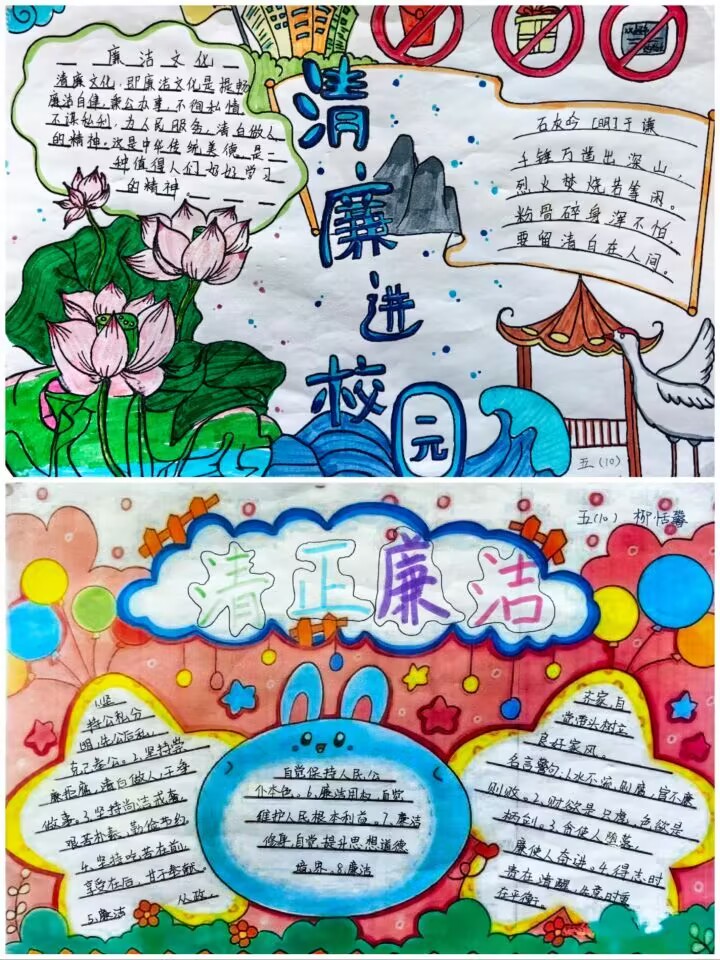 廉洁文化
清廉文化,即廉洁文化是提畅
廉洁自律,秉公办事,不徇私情,
不谋私利,为人民服务,清白做人
的精神。这是中华传统美德,是一
种值得人们好好学习
的精神。
清·廉·进校园
石灰吟 [明]于谦
千锤万凿出深山,
烈火焚烧若等闲。
粉骨碎身浑不怕,
要留清白在人间。
五(10)
五(10) 柳恬馨
清正廉洁
1.坚
持公私分
明,先公后私,
克己奉公。2.坚持崇
廉拒腐,清白做人,干净
做事。3.坚持尚俭戒奢,
艰苦朴素,勤俭节约
4.坚持吃苦在前,
享受在后,甘于奉献。
5.廉洁 从政,
自觉保持人民公
仆本色。6.廉洁用权,自觉
维护人民根本利益。7.廉洁
修身,自觉提升思想道德
境界。8.廉洁
齐家,自
觉带头树立
良好家风
名言警句:1.水不流则腐,官不廉
则败。2.财欲是只虎,色欲是
柄剑。3.贪使人堕落,
廉使人奋进。4.得志时
贵在清醒,失意时重
在平衡。